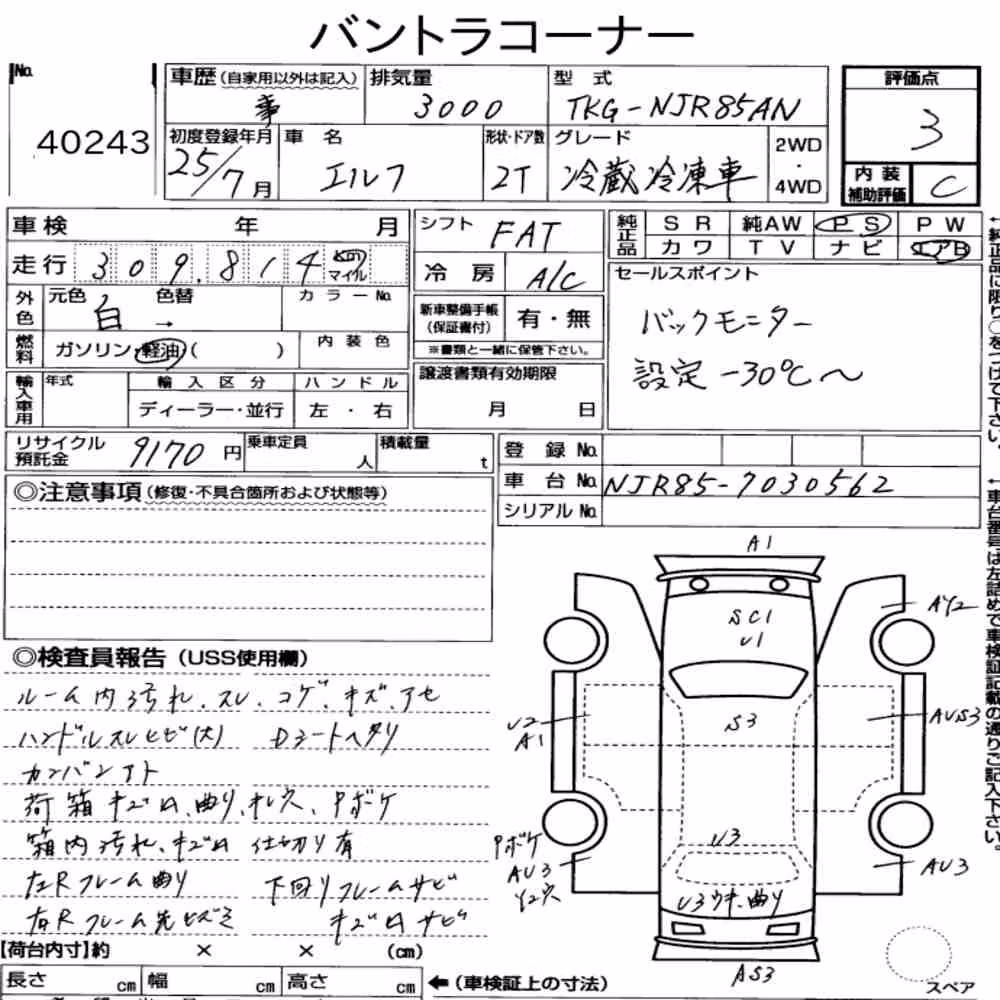 バントラコーナー
No. 40243
車歴(自家用以外は記入) 事
排気量 3000
型式 TKG-NJR85AN
評価点 3
初度登録年月 25/7月
車名 エルフ
形状・ドア数 2T
グレード 冷蔵冷凍車
2WD・4WD
内装補助評価 C
車検 年 月
走行 309,814 km マイル
外色 元色 白 色替 → カラーNo.
燃料 ガソリン・軽油( ) 内装色
輸入車用 年式 輸入区分 ディーラー・並行 ハンドル 左・右
シフト FAT
冷房 A/C
新車整備手帳(保証書付) 有・無
※書類と一緒に保管下さい。
譲渡書類有効期限 月 日
純正品 SR 純AW PS PW
カワ TV ナビ エアB
セールスポイント
バックモニター
設定 -30℃〜
←純正品に限り○をつけて下さい。
リサイクル預託金 9170円
乗車定員 人
積載量 t
登録No.
車台No. NJR85-7030562
シリアルNo.
←車台番号は左詰めで車検証記載の通りご記入下さい。
◎注意事項(修復・不具合箇所および状態等)
◎検査員報告(USS使用欄)
ルーム内汚れ、スレ、コゲ、キズ、アセ
ハンドルスレヒビ(大) Dシートヘタリ
カンバンアト
荷箱キズ凹、曲り、オレ穴、Pボケ
箱内汚れ、キズ凹 仕切り有
左Rフレーム曲り 下回りフレームサビ
右Rフレーム先ヒズミ キズ凹サビ
A1
SC1
U1
AY2
S3
U2
A1
AUS3
U3
Pボケ
AU3
Y2穴
AU3
U3ワキ、曲り
AS3
スペア
【荷台内寸】約 × × (cm)
長さ cm 幅 cm 高さ cm ←(車検証上の寸法)